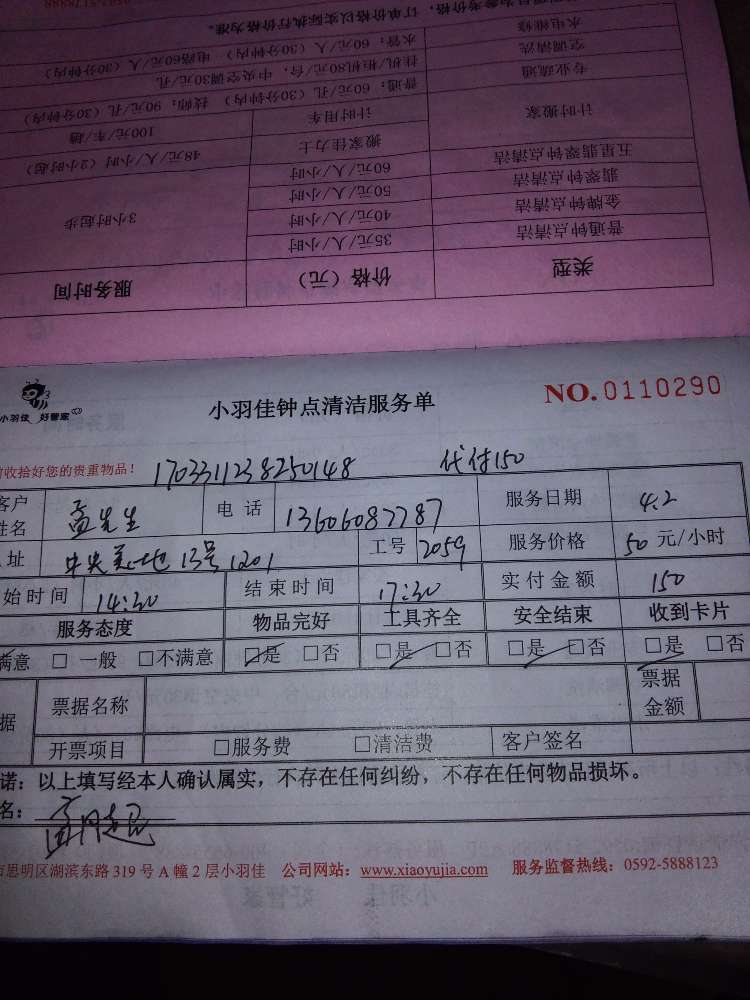 订单价格以实际执行价格为准。
水电维修 水管：60元/人（30分钟内） 电路60元/人（30分钟内）
空调清洗 挂机/柜机80元/台，中央空调30元/孔
专业疏通 普通：60元/孔（30分钟内） 技师：90元/孔（30分钟内）
计时搬家 计时用车 100元/车/趟
搬家佳力士 48元/人/小时（2小时起）
五星翡翠钟点清洁 60元/人/小时
翡翠钟点清洁 50元/人/小时
金牌钟点清洁 40元/人/小时
普通钟点清洁 35元/人/小时
3小时起步
类型 价格（元） 服务时间
小羽佳 好管家
小羽佳钟点清洁服务单 NO.0110290
收拾好您的贵重物品！ 1703311238250148 代付150
客户姓名 孟先生 电话 13606087787 服务日期 4.2
址 13号1201 工号 2059 服务价格 50 元/小时
始时间 14:30 结束时间 17:30 实付金额 150
服务态度 物品完好 工具齐全 安全结束 收到卡片
满意 □ 一般 □不满意 □是 □否 □是 □否 □是 □否 □是 □否
据 票据名称 票据金额
开票项目 □服务费 □清洁费 客户签名
诺：以上填写经本人确认属实，不存在任何纠纷，不存在任何物品损坏。
名：
思明区湖滨东路 319 号 A 幢 2 层小羽佳 公司网站：www.xiaoyujia.com 服务监督热线：0592-5888123